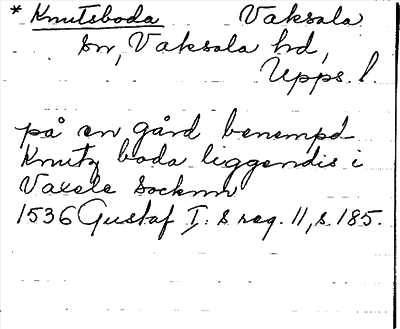 * Knutsboda Vaksala
sn, Vaksala hd,
Upps. l.
på en gård benempd
Knutz boda liggendis i
Vaxele Socknn
1536 Gustaf I:s reg. 11, s. 185.